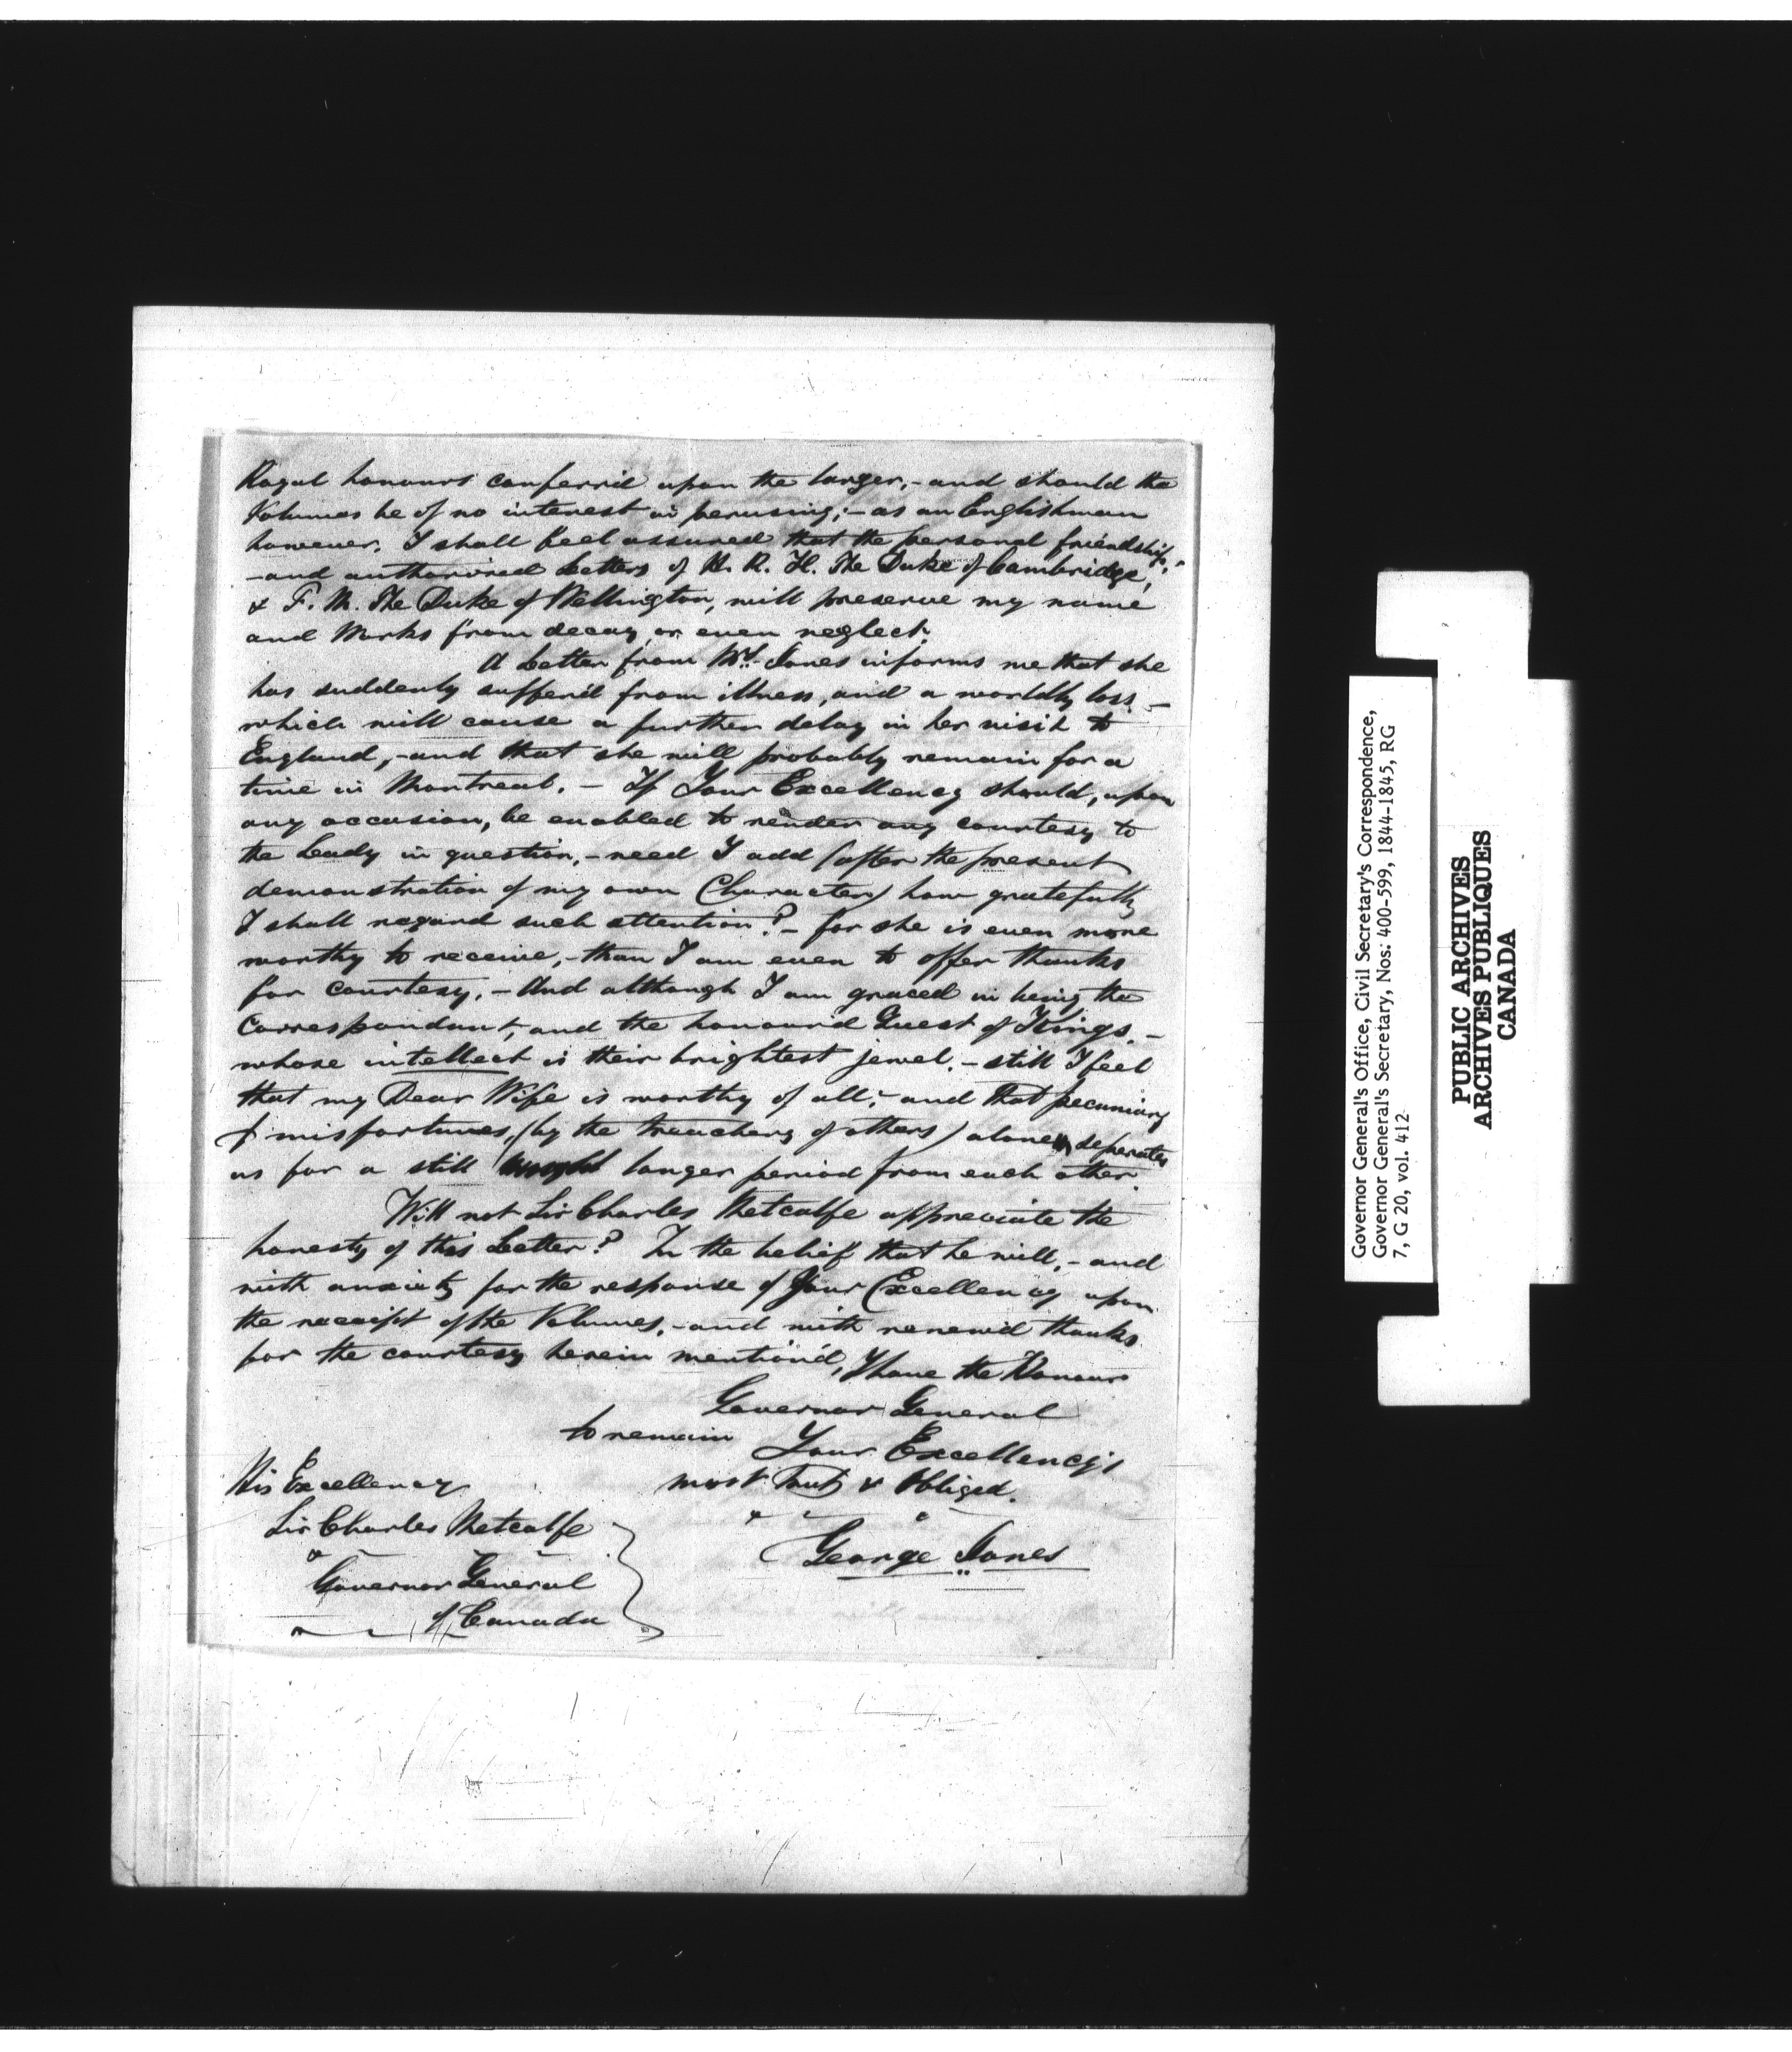 Royal honours conferrid upon the larger,- and should the
Volumes be of no interest in perusing;- as an Englishman
however, I shall feel assured that the personal friendship,
-and authorized Letters of H. R. H. The Duke of Cambridge,
& F. M. The Duke of Wellington, will preserve my name
and Works from decay, or even neglect.
A Letter from Mrs. Jones informs me that she
has suddenly suffer'd from illness, and a worldly loss -
which will cause a further delay in her visit to
England,- and that she will probably remain for a
time in Montreal. - If Your Excellency should, upon
any occasion, be enabled to render any courtesy to
the Lady in question,- need I add (after the present
demonstration of my own Character) how gratefully
I shall regard such attention? - for she is even more
worthy to receive,- than I am even to offer thanks
for courtesy. - And although I am graced in being the
Correspondant, and the honourd Guest of Kings, -
whose intellect is their brightest jewel. - still I feel
that my Dear Wife is worthy of all;- and that pecuniary
misfortunes, (by the treachery of others) alone seperates
us for a still longer period from each other.
Will not Sir Charles Metcalfe appreciate the
honesty of this Letter? In the belief that he will,- and
with anxiety for the response of Your Excellency upon
the receipt of the Volumes,- and with renew'd thanks
for the courtesy herein mention'd, I have the Honour
Governor General
to remain Your Excellency's
most & Obliged.
George Jones
His Excellency
Sir Charles Metcalfe
Governor General
of Canada
Governor General's Office, Civil Secretary's Correspondence,
Governor General's Secretary, Nos: 400-599, 1844-1845, RG
7, G 20, vol. 412
PUBLIC ARCHIVES
ARCHIVES PUBLIQUES
CANADA